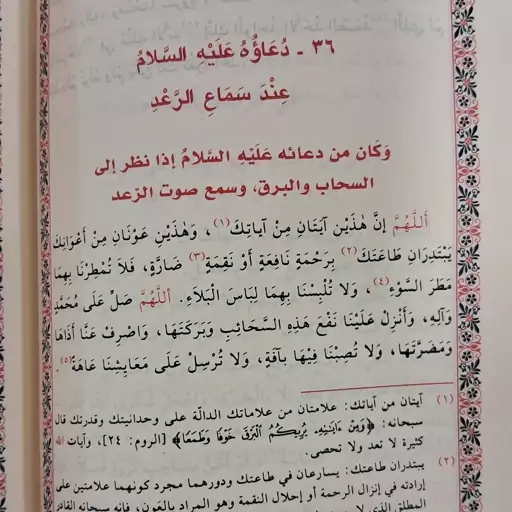 ٣٦ ـ دُعَاؤُهُ عَلَيْهِ السَّلامُ
عِنْدَ سَمَاعِ الرَّعْدِ
وَكَان من دعائه عَلَيْهِ السَّلامُ إذا نظر إلى
السحاب والبرق، وسمع صوت الرعد
أَللَّهُمَّ إِنَّ هٰذَيْنِ آيَتَانِ مِنْ آيَاتِكَ(١)، وَهٰذَيْنِ عَوْنَانِ مِنْ أَعْوَانِكَ
يَبْتَدِرَانِ طَاعَتَكَ(٢) بِرَحْمَةٍ نَافِعَةٍ أَوْ نَقِمَةٍ(٣) ضَارَّةٍ، فَلاَ تُمْطِرْنَا بِهِمَا
مَطَرَ السَّوْءِ(٤)، وَلاَ تُلْبِسْنَا بِهِمَا لِبَاسَ الْبَلاَءِ. أَللَّهُمَّ صَلِّ عَلَى مُحَمَّدٍ
وَآلِهِ، وَأَنْزِلْ عَلَيْنَا نَفْعَ هَذِهِ السَّحَائِبِ وَبَرَكَتَهَا، وَاصْرِفْ عَنَّا أَذَاهَا
وَمَضَرَّتَهَا، وَلاَ تُصِبْنَا فِيْهَا بِآفَةٍ، وَلاَ تُرْسِلْ عَلَى مَعَايِشِنَا عَاهَةً(٥).
(١) آيتان من آياتك: علامتان من علاماتك الدالّة على وحدانيتك وقدرتك قال
سبحانه: ﴿وَمِنْ ءَايَٰتِهِۦ يُرِيكُمُ ٱلْبَرْقَ خَوْفًا وَطَمَعًا﴾ [الروم: ٢٤]، وآيات الله
كثيرة لا تعد ولا تحصى.
(٢) يبتدران طاعتك: يسارعان في طاعتك ودورهما مجرد كونهما علامتين على
إرادته في إنزال الرحمة أو إحلال النقمة وهو المراد بالعَون، فإنه سبحانه القادر
المطلق الذي لا